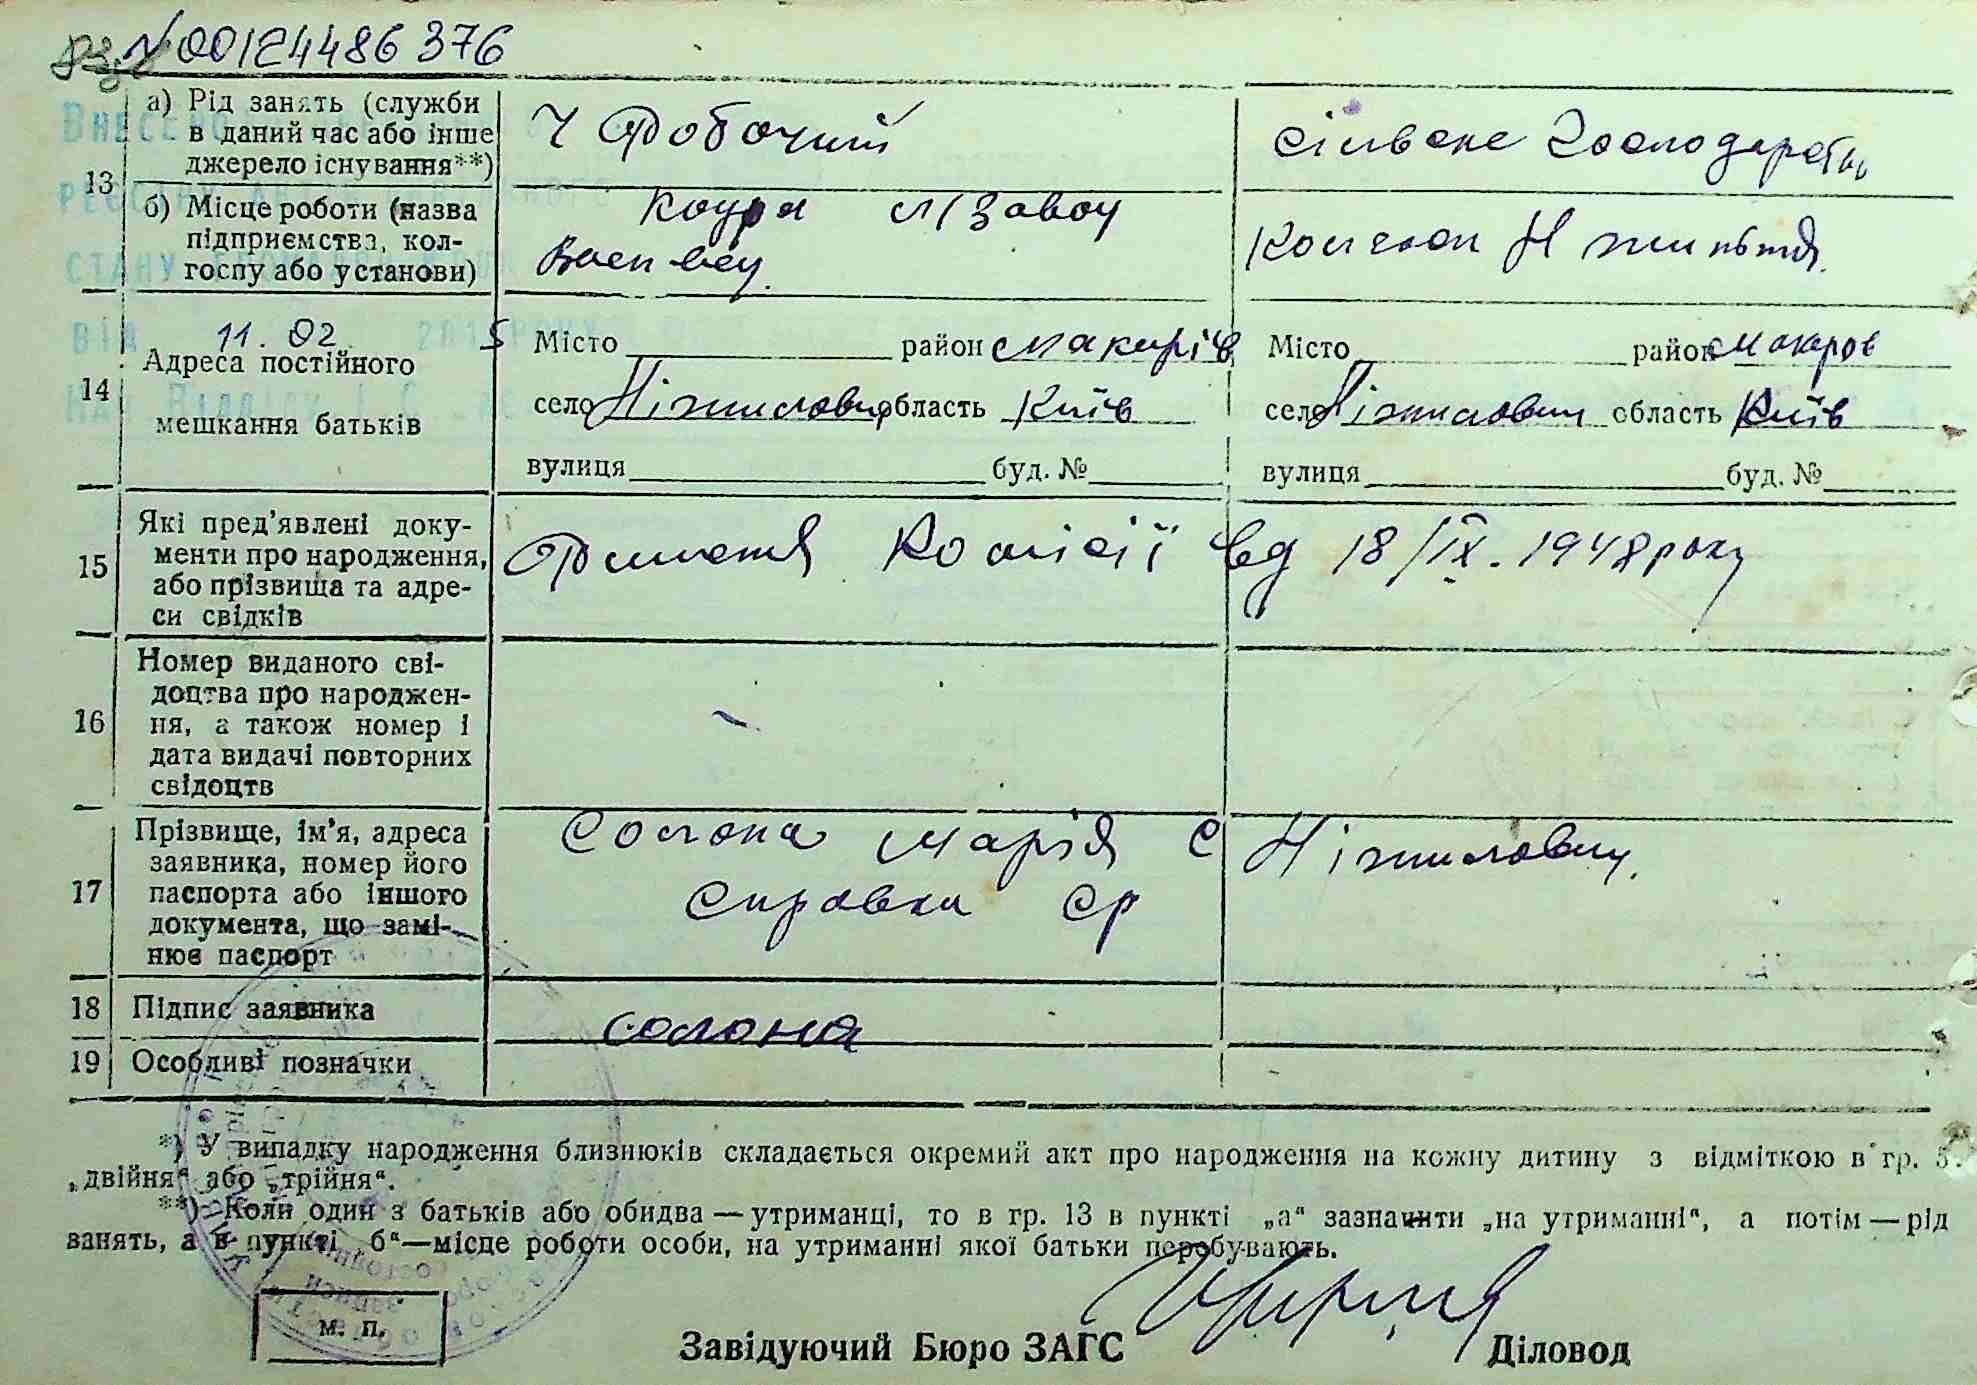 №00124486376
13
а) Рід занять (служби
в даний час або інше
джерело існування**)
Робочий
сільське господарство
б) Місце роботи (назва
підприємства, кол-
госпу або установи)
завод
14
від 11.02. 2015 року
Адреса постійного
мешкання батьків
Місто район Макарів
село Ніжиловичі область Київ
вулиця буд. №
Місто район Макаров
село Ніжиловичі область Київ
вулиця буд. №
15
Які пред'явлені доку-
менти про народження,
або прізвища та адре-
си свідків
Комісії від 18/IX. 1948 року
16
Номер виданого сві-
доцтва про народжен-
ня, а також номер і
дата видачі повторних
свідоцтв
17
Прізвище, ім'я, адреса
заявника, номер його
паспорта або іншого
документа, що замі-
нює паспорт
Солона Марія С Ніжиловичі.
Справка ср
18 Підпис заявника
Солона
19 Особливі позначки
*) У випадку народження близнюків складається окремий акт про народження на кожну дитину з відміткою в гр. 5.
„двійня“ або „трійня“.
**) Коли один з батьків або обидва — утриманці, то в гр. 13 в пункті „а“ зазначити „на утриманні“, а потім — рід
занять, а в пункті б“—місце роботи особи, на утриманні якої батьки перебувають.
м. п.
Завідуючий Бюро ЗАГС
Діловод